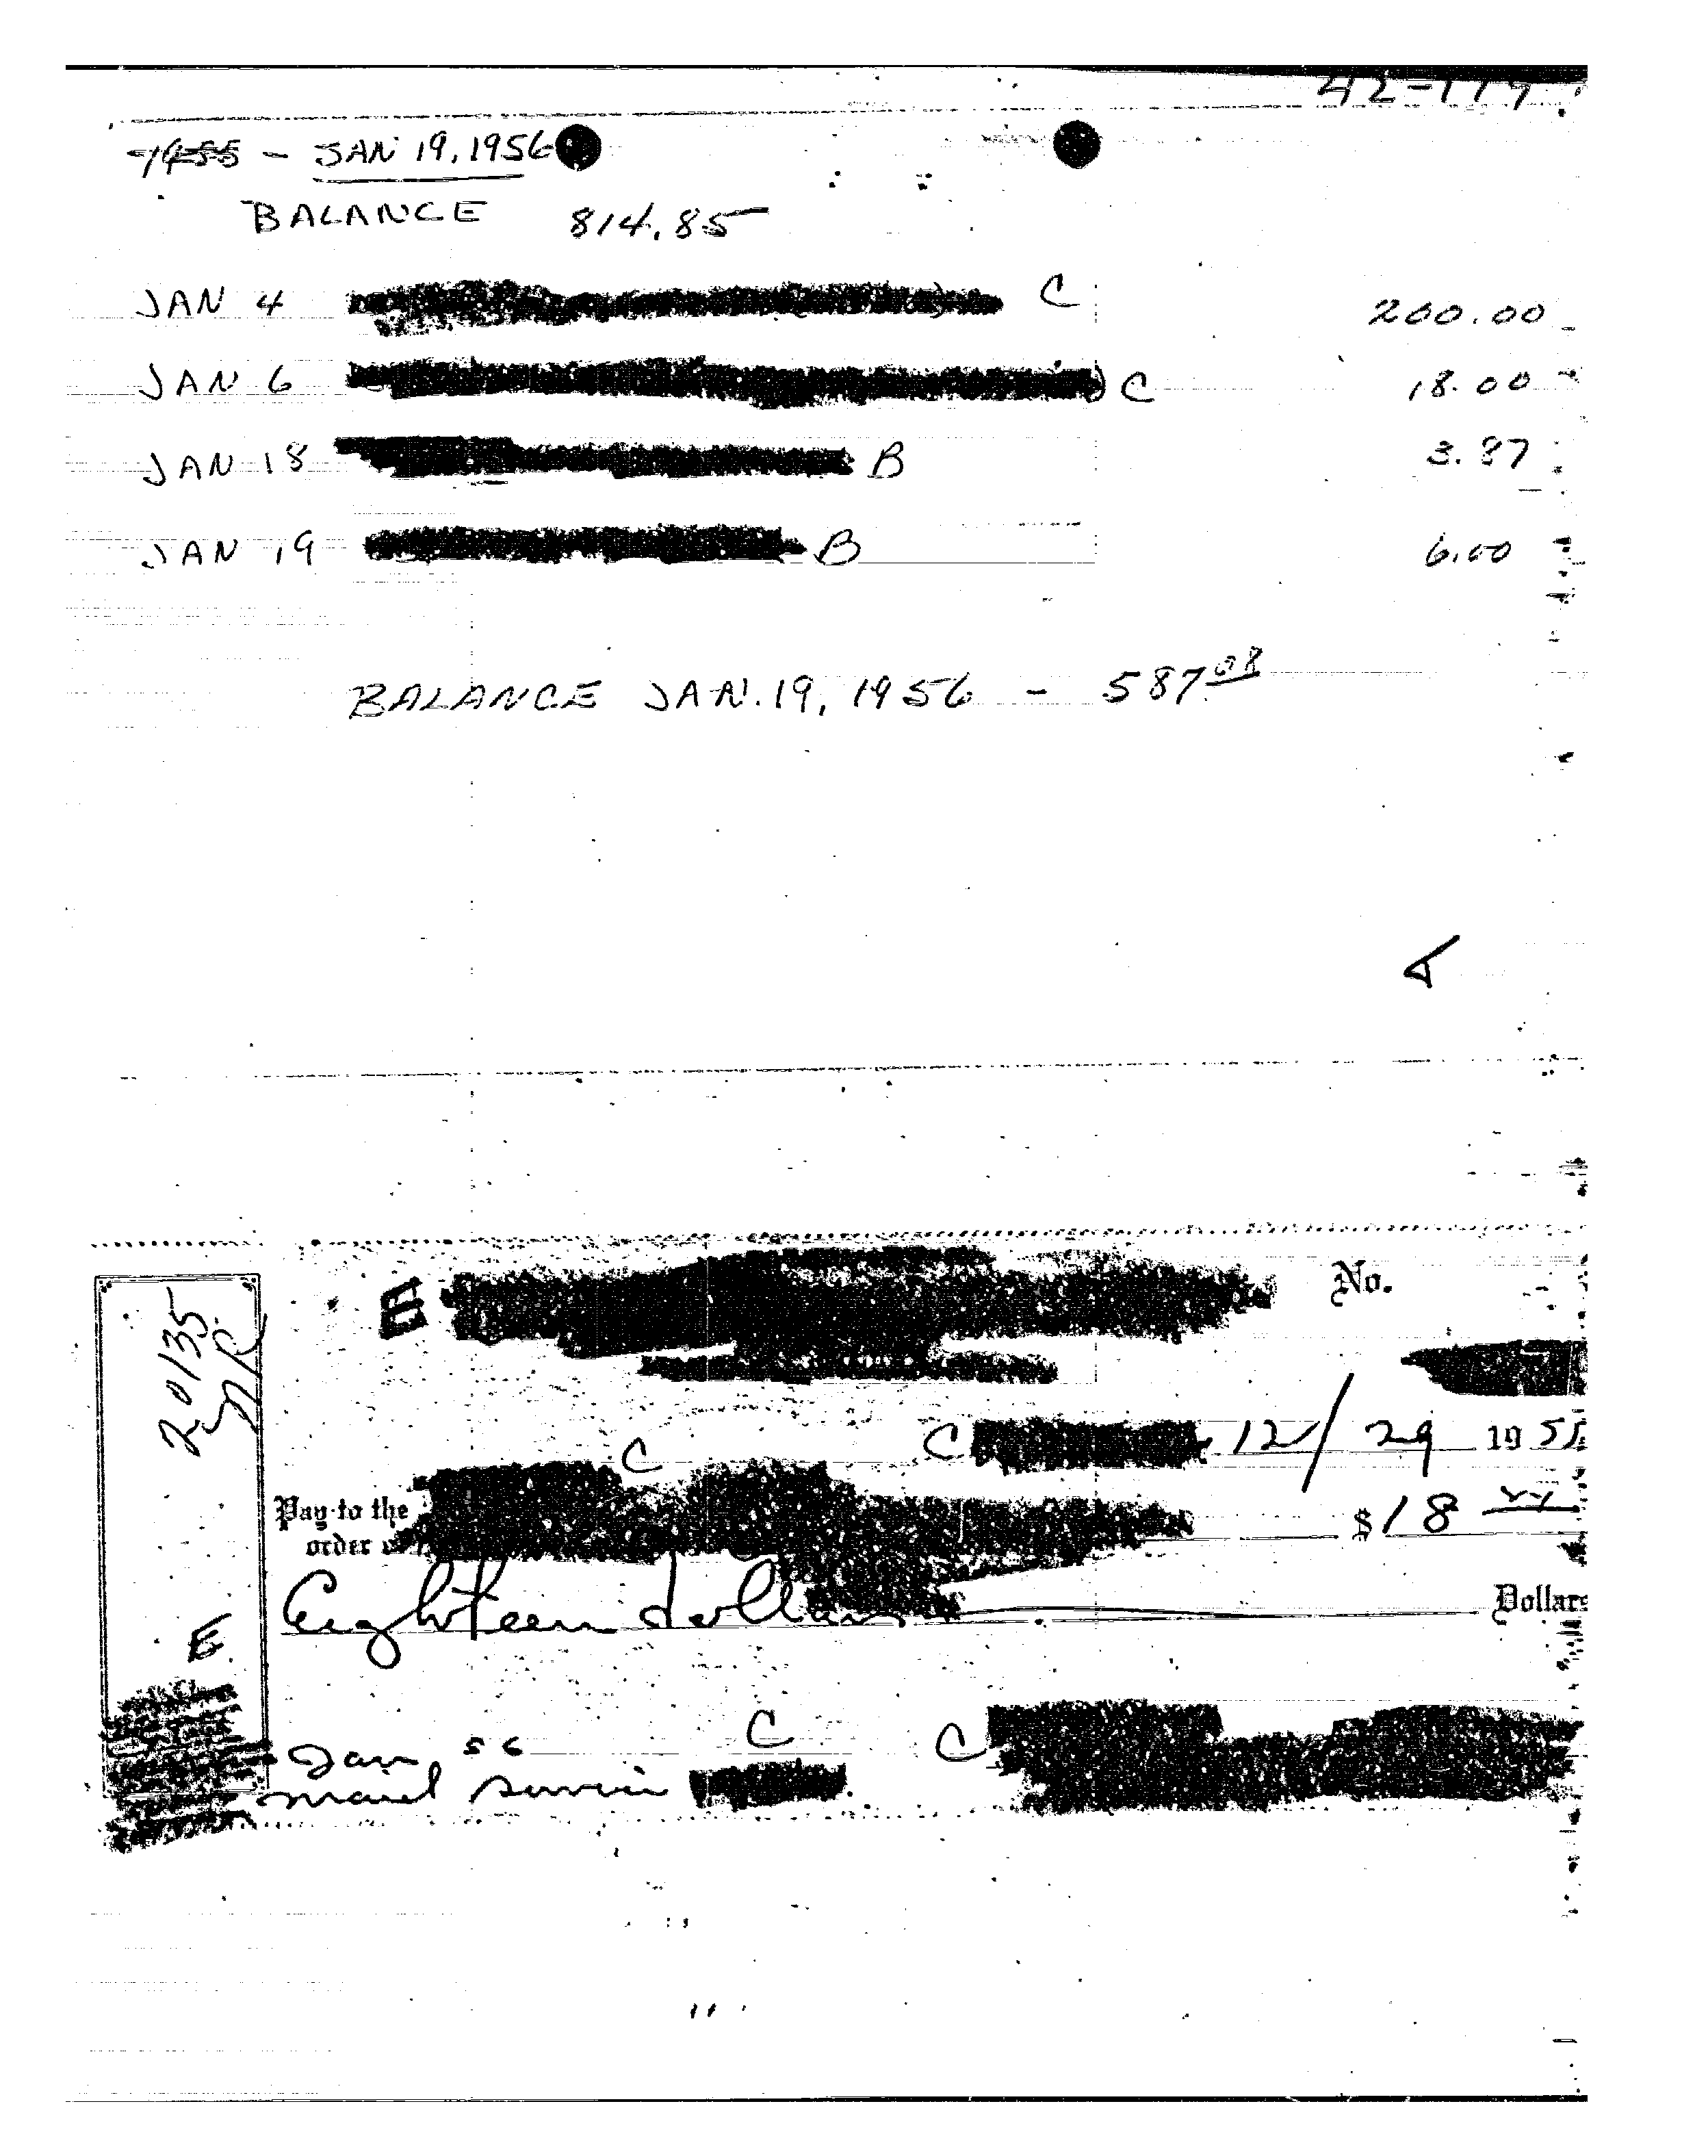 - JAN 19, 1956
BALANCE 814.85
JAN 4 C 200.00
JAN 6 C 18.00
JAN 18 B 3.87
JAN 19 B 6.00
BALANCE JAN. 19, 1956 - 587 08
E No.
20135
C 12/29 1955
C
Pay to the
order of $18
Eighteen dollars Dollars
E
Jan 56 C C
Maid Service